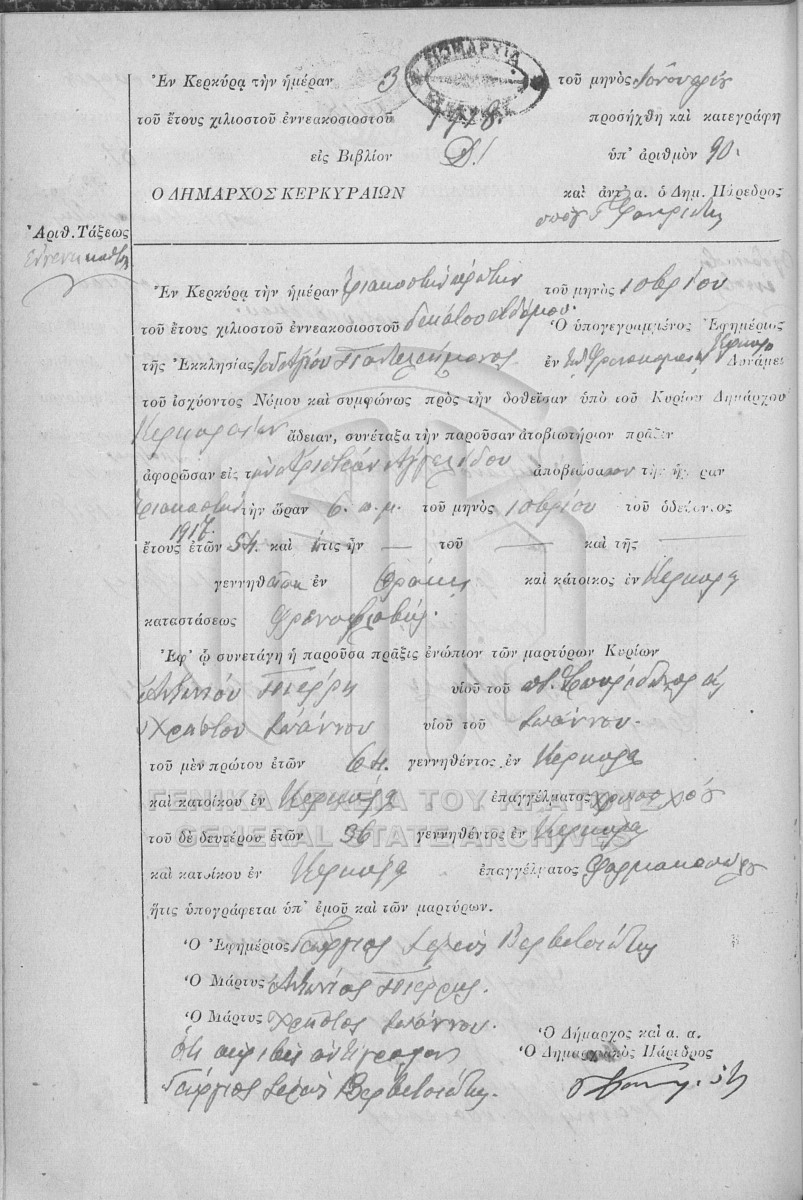 ΔΗΜΑΡΧΙΑ
Ἐν Κερκύρᾳ τὴν ἡμέραν 3 τοῦ μηνὸς Ἰανουαρίου
τοῦ ἔτους χιλιοστοῦ ἐννεακοσιοστοῦ 1918. προσήχθη καὶ κατεγράφη
εἰς Βιβλίον Δ! ὑπ' ἀριθμὸν 90.
Ο ΔΗΜΑΡΧΟΣ ΚΕΡΚΥΡΑΙΩΝ καὶ ἀντ' α. ὁ Δημ. Πάρεδρος
Ἀριθ. Τάξεως
Ἐν Κερκύρᾳ τὴν ἡμέραν τριακοστὴν πρώτην τοῦ μηνὸς 10βρίου
τοῦ ἔτους χιλιοστοῦ ἐννεακοσιοστοῦ δεκάτου ἑβδόμου. Ὁ ὑπογεγραμμένος Ἐφημέριος
τῆς Ἐκκλησίας τοῦ Ἁγίου Παντελεήμονος ἐν τῷ Φρενοκομείῳ Κερκύρας Δυνάμει
τοῦ ἰσχύοντος Νόμου καὶ συμφώνως πρὸς τὴν δοθεῖσαν ὑπὸ τοῦ Κυρίου Δημάρχου
Κερκυραίων ἄδειαν, συνέταξα τὴν παροῦσαν ἀποβιωτήριον πρᾶξιν
ἀφορῶσαν εἰς τὸν Ἀγγελίδου ἀποβιώσαντα τὴν ἡμέραν
τριακοστὴν τὴν ὥραν 6. π.μ. τοῦ μηνὸς 10βρίου τοῦ ὁδεύοντος
1917.
ἔτους ἐτῶν 54. καὶ ὅστις ἦν — τοῦ — καὶ τῆς —
γεννηθεὶς ἐν Θράκῃ καὶ κάτοικος ἐν Κερκύρᾳ
καταστάσεως φρενοβλαβής.
Ἐφ' ᾧ συνετάγη ἡ παροῦσα πρᾶξις ἐνώπιον τῶν μαρτύρων Κυρίων
Ἀντωνίου Πιέρρη υἱοῦ τοῦ ποτ. Σπυρίδωνος &
Χρήστου Ἰωάννου υἱοῦ τοῦ Ἰωάννου.
τοῦ μὲν πρώτου ἐτῶν 64. γεννηθέντος ἐν Κερκύρᾳ
καὶ κατοίκου ἐν Κερκύρᾳ ἐπαγγέλματος χρυσοχόου
ΓΕΝΙΚΑ ΑΡΧΕΙΑ ΤΟΥ ΚΡΑΤΟΥΣ
τοῦ δὲ δευτέρου ἐτῶν 36 γεννηθέντος ἐν Κερκύρᾳ
GENERAL STATE ARCHIVES
καὶ κατοίκου ἐν Κερκύρᾳ ἐπαγγέλματος Φαρμακοποιοῦ
ἥτις ὑπογράφεται ὑπ' ἐμοῦ καὶ τῶν μαρτύρων.
Ὁ Ἐφημέριος Γεώργιος Ἱερεὺς Βερβιτσιώτης
Ὁ Μάρτυς Ἀντώνιος Πιέρρης.
Ὁ Μάρτυς Χρῆστος Ἰωάννου.
Ὅτι ἀκριβὲς ἀντίγραφον
Ὁ Δήμαρχος καὶ α. α.
Ὁ Δημαρχιακὸς Πάρεδρος
Γεώργιος Ἱερεὺς Βερβιτσιώτης.